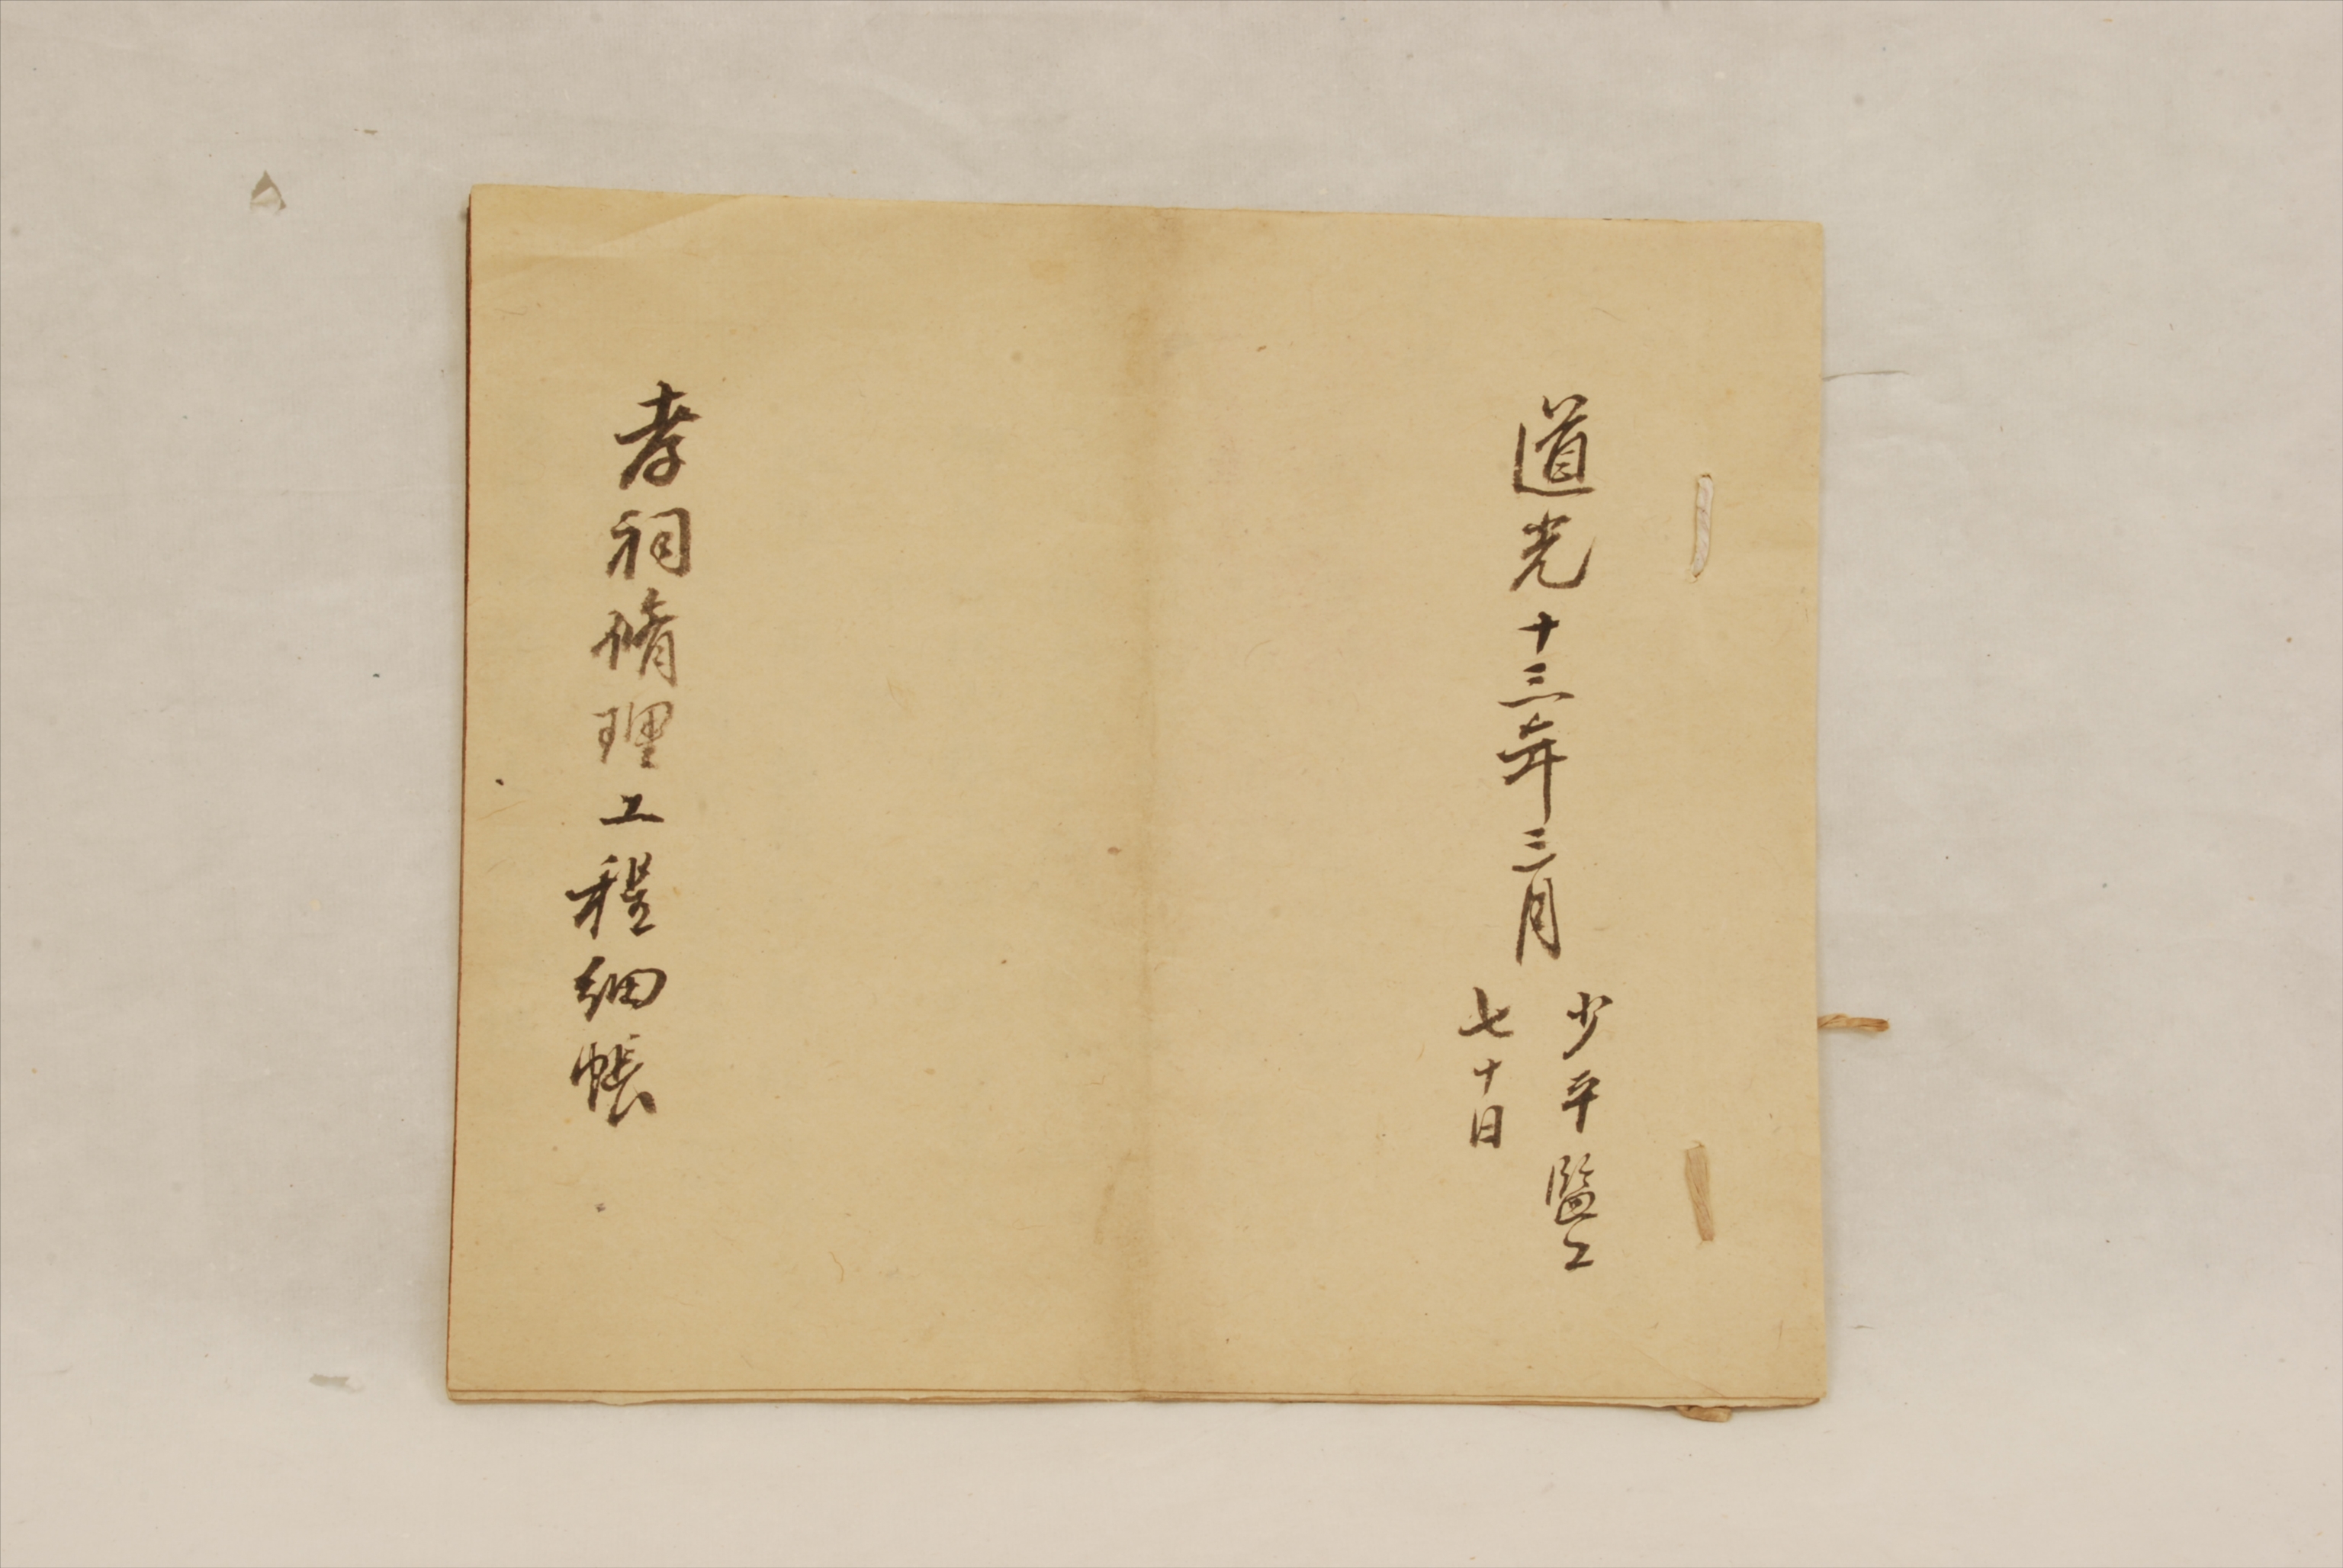 道光十三年三月
少平監工
七十日
孝祠脩理工程細帳